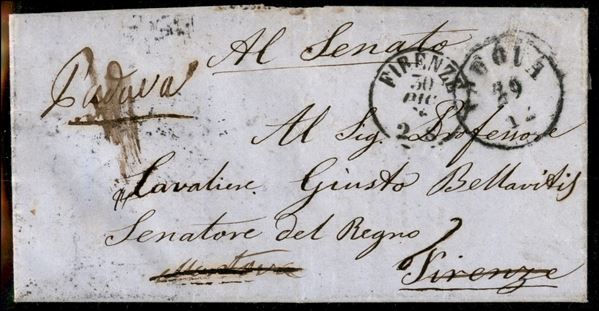 Al Senato
Padova
FIRENZE
30
DIC
2 S
29
12
Al Sig. Professore
Cavaliere Giusto Bellavitis
Senatore del Regno
Mantova
Firenze